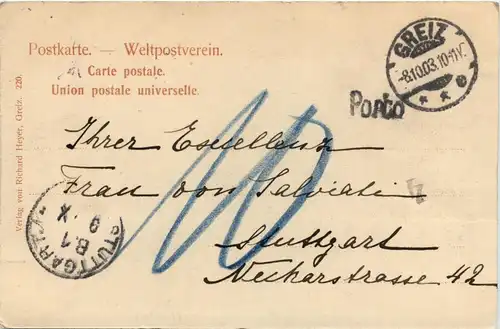 Postkarte. — Weltpostverein.
Carte postale.
Union postale universelle.
GREIZ
-8.10.03.10-11V.
* * e
Porto
10
Ihrer Excellenz
Frau von Salviati
4
Stuttgart
Neckarstrasse 42
STUTTGART
B.1
9 X
Verlag von Richard Heyer, Greiz. 220.